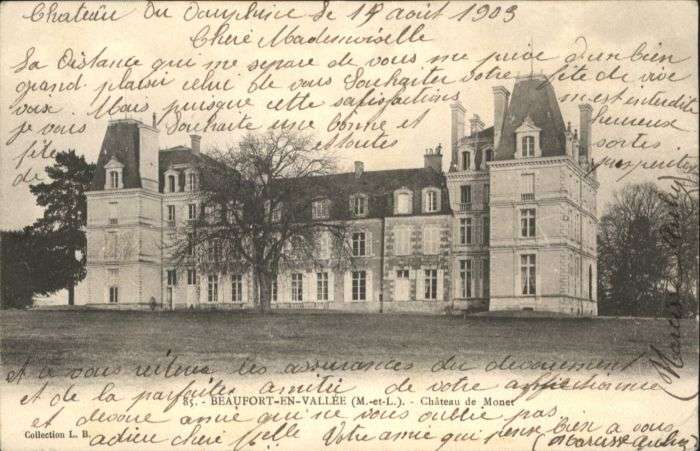 Chateau Du Dauphine le 14 août 1903
Cheré Mademoiselle
La Distance qui me separe de vous me prive d'un bien
grand plaisir celui de vous Souhaiter votre fète de vive
voix Mais puisque cette satisfactions m'est interdite
je vous Souhaite une bonne et heureuse
fète et toutes sortes
de prosperitées
et je vous reitere les assurances du devouement
et de la parfaites amitié de votre affectionnée
85. - BEAUFORT-EN-VALLÉE (M.-et-L.). - Château de Monet
et devoué amie qui ne vous oublie pas
adieu cheré Melle Votre amie qui pense bien a vous
Collection L. B.